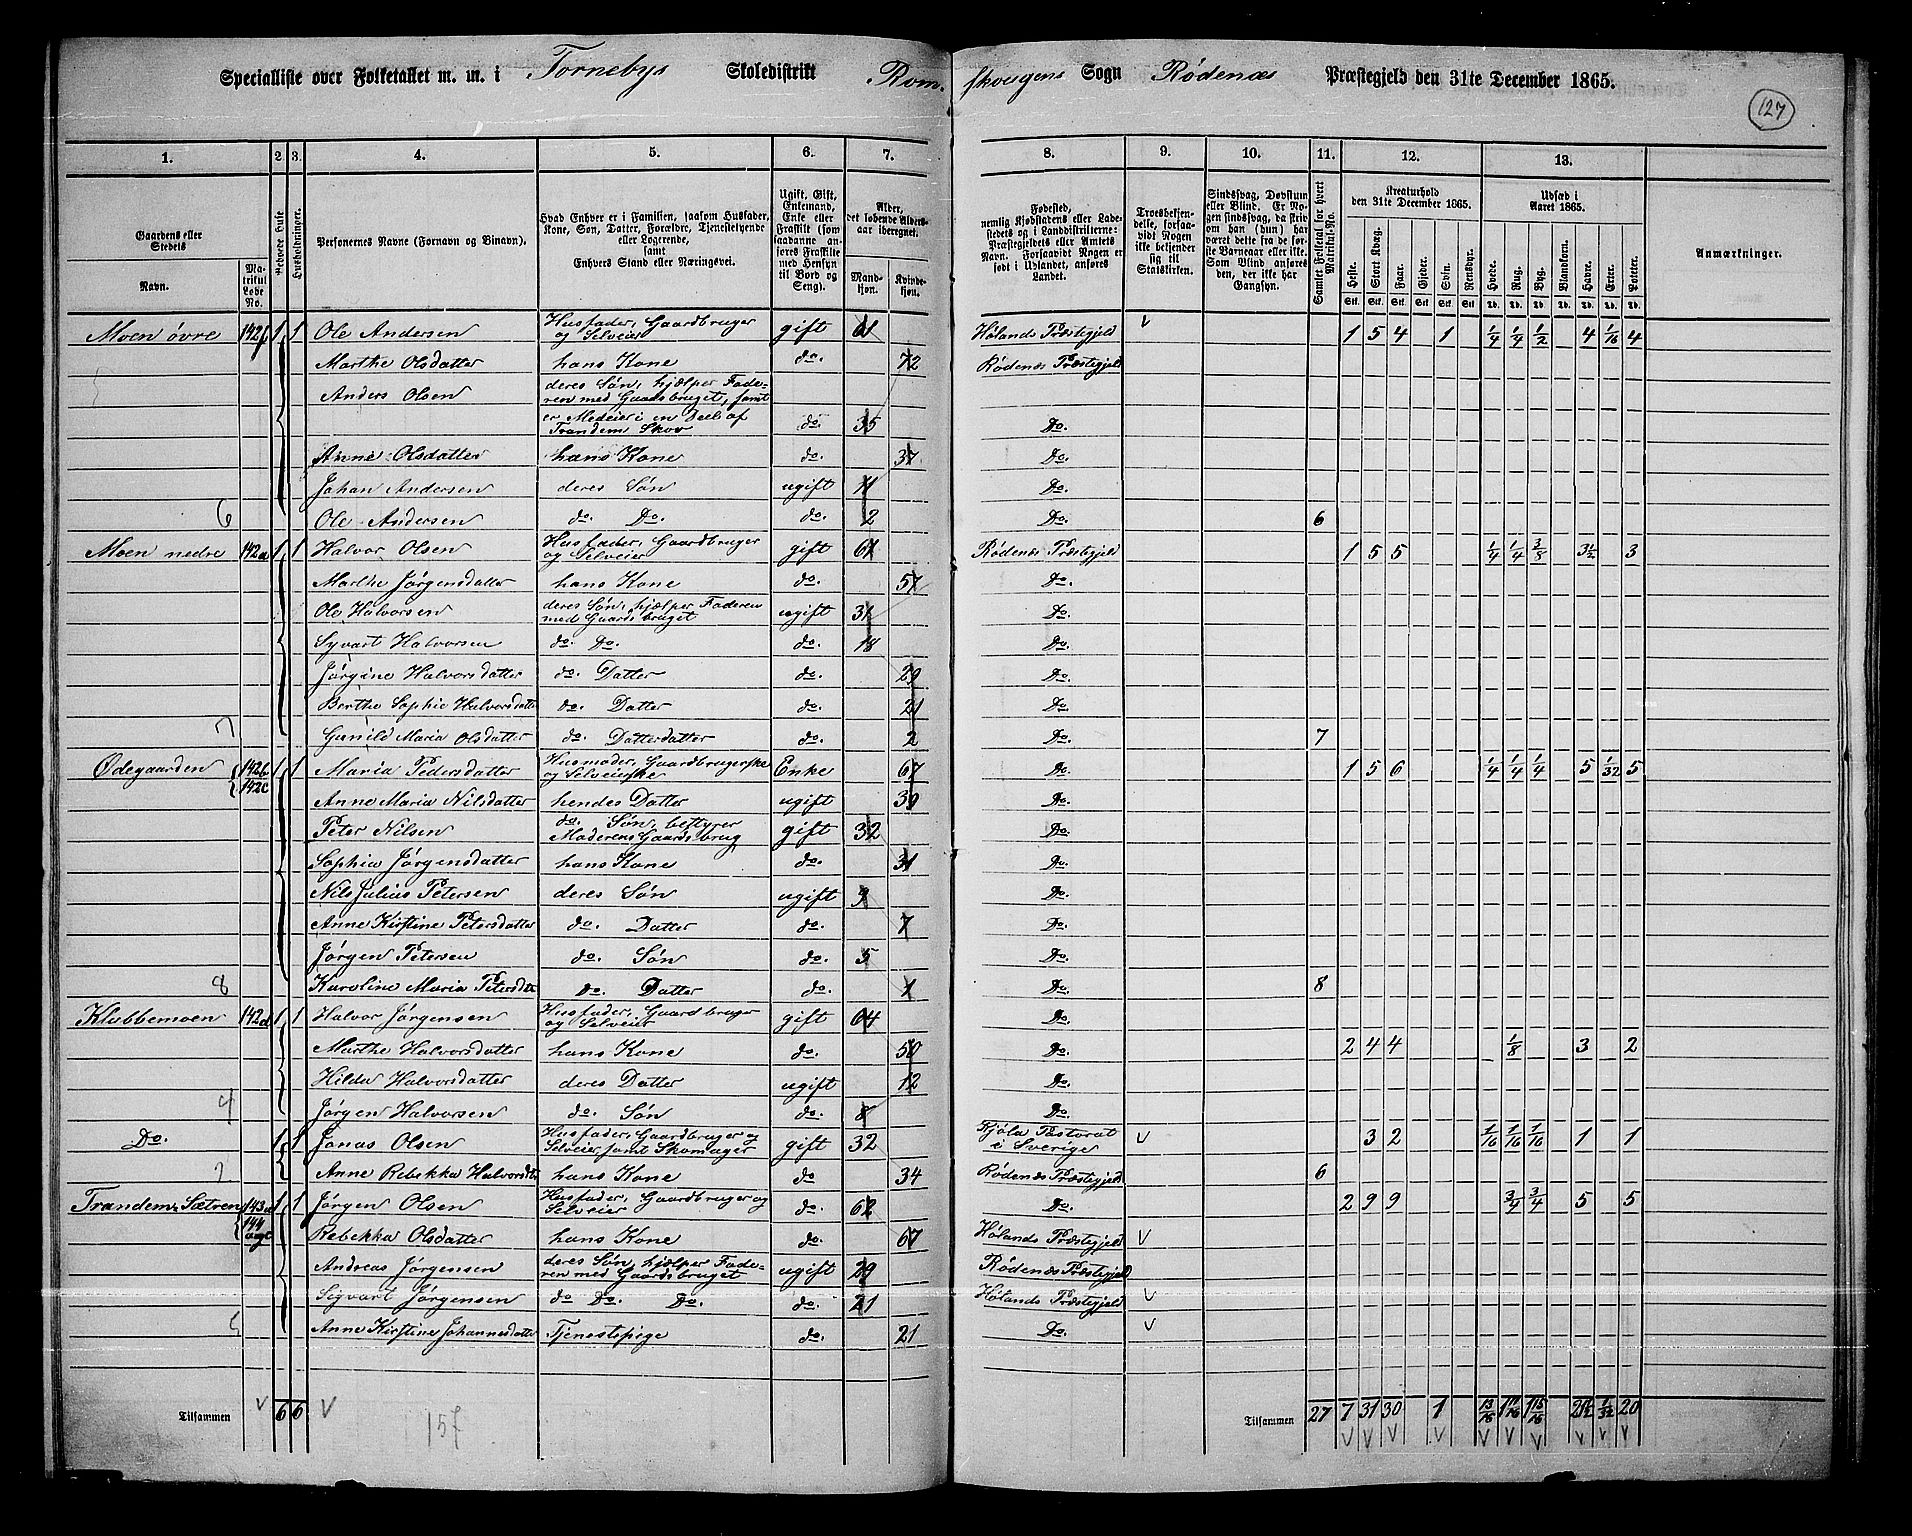 Specialliste over Folketallet m. m. i Tornebys Skoledistrikt Rom- skougens Sogn Rødenæs Præstegjeld den 31te December 1865.
127
1. 2. 3. 4. 5. 6. 7. 8. 9. 10. 11. 12. 13.
Gaardens eller Stedets
Navn. Matrikul Løbe No.
Beboede Huse
Husholdninger.
Personernes Navne (Fornavn og Binavn).
Hvad Enhver er i Familien, saasom Husfader, Kone, Søn, Datter, Forældre, Tjenestetyende eller Logerende, samt Enhvers Stand eller Næringsvei.
Ugift, Gift, Enkemand, Enke eller Fraskilt (som saadanne anføres Fraskilte med Hensyn til Bord og Seng).
Alder, det løbende Alders-aar iberegnet.
Mandkjøn. Kvindekjøn.
Fødested, nemlig Kjøbstadens eller Ladestedets og i Landdistrikterne: Præstegjeldets eller Amtets Navn. Forsaavidt Nogen er født i Udlandet, anføres Landet.
Troesbekjendelse, forsaavidt Nogen ikke bekjender sig til Statskirken.
Sindssvag, Døvstum eller Blind. Er Nogen sindssvag, da skrives om han (hun) har været dette fra de første Barneaar eller ikke. Som Blind anføres den, der ikke har Gangsyn.
Samlet Folketal for hvert Matrikul-No.
Kreaturhold den 31te December 1865.
Heste. Stort Kvæg. Faar. Gjeder. Svin. Rensdyr.
Udsæd i Aaret 1865.
Hvede. Rug. Byg. Blandkorn. Havre. Erter. Poteter.
Anmærkninger.
Moen øvre 142f 1 1 Ole Andersen Husfader, Gaardbruger og Selveier gift 61 Hølands Præstegjeld v 1 5 4 1 1/4 1/4 1/2 4 1/16 4
Marthe Olsdatter hans Kone do. 72 Rødenæs Præstegjeld
Anders Olsen deres Søn, hjælper Faderen med Gaardsbruget, samt er Medeier i en Deel af Trandem Skov do. 35 Do.
Anne Olsdatter hans Kone do. 37 Do.
Johan Andersen deres Søn ugift 11 Do.
6 Ole Andersen do. Do. do. 2 Do. 6
Moen nedre 142a 1 1 Halvor Olsen Husfader, Gaardbruger og Selveier gift 61 Rødenæs Præstegjeld 1 5 5 1/4 1/4 3/8 3 1/2 3
Marthe Jørgensdatter hans Kone do. 57 Do.
Ole Halvorsen deres Søn, hjælper Faderen med Gaardsbruget ugift 31 Do.
Syvart Halvorsen do. Do. do. 18 Do.
Jørgine Halvorsdatter do. Datter do. 29 Do.
Berthe Sophie Halvorsdatter do. Datter do. 21 Do.
7 Gunild Maria Olsdatter do. Datterdatter do. 2 Do. 7
Ødegaarden 142b 142c 1 1 Maria Pedersdatter Husmoder, Gaardbrugerske og Selveierske Enke 67 Do. 1 5 6 1/4 1/4 1/4 5 1/32 5
Anne Maria Nilsdatter hendes Datter ugift 30 Do.
Peter Nilsen do. Søn, bestyrer Moderens Gaardsbrug gift 32 Do.
Sophia Jørgensdatter hans Kone do. 31 Do.
Nils Julius Petersen deres Søn ugift 9 Do.
Anne Kirstine Petersdatter do. Datter do. 7 Do.
Jørgen Petersen do. Søn do. 5 Do.
8 Karoline Maria Petersdat do. Datter do. 1 Do. 8
Klubbemoen 142d 1 1 Halvor Jørgensen Husfader, Gaardbruger og Selveier gift 64 Do.
Marthe Halvorsdatter hans Kone do. 50 Do. 2 4 4 1/8 3 2
Hilda Halvorsdatter deres Datter ugift 12 Do.
4 Jørgen Halvorsen do. Søn do. 8 Do.
Do. 1 1 Jonas Olsen Husfader, Gaardbruger og Selveier, samt Skomager gift 32 Tjøla Pastorat i Sverige v 3 2 1/16 1/16 1/16 1 1
2 Anne Rebekka Halvorsdtr hans Kone do 34 Rødenæs Præstegjeld 6
Trandem, Sætren 143a 144 1 1 Jørgen Olsen Husfader, Gaardbruger og Selveier do. 62 Do. 2 9 9 3/4 3/4 5 5
Rebekka Olsdatter hans Kone do. 67 Hølands Præstegjeld v
Andreas Jørgensen deres Søn, hjælper Faderen med Gaardsbruget ugift 29 Rødenæs Præstegjeld
Sigvart Jørgensen do Do. Do. do. 21 Hølands Præstegjeld v
5 Anne Kirstine Johannesdatter Tjenestepige do. 21 Do. v
Tilsammen v 6 6 v Tilsammen 27 7 31 30 1 13/16 1 11/16 1 15/16 21 1/2 3/32 20
v v v v v v v v v v
157